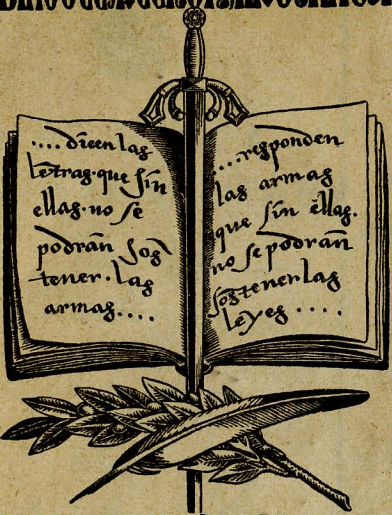 ....dicen las
letras·que sin
ellas·no se
podrán sos
tener·las
armas....
...responden
las armas
que sin ellas.
no se podrán
sostener las
leyes ....